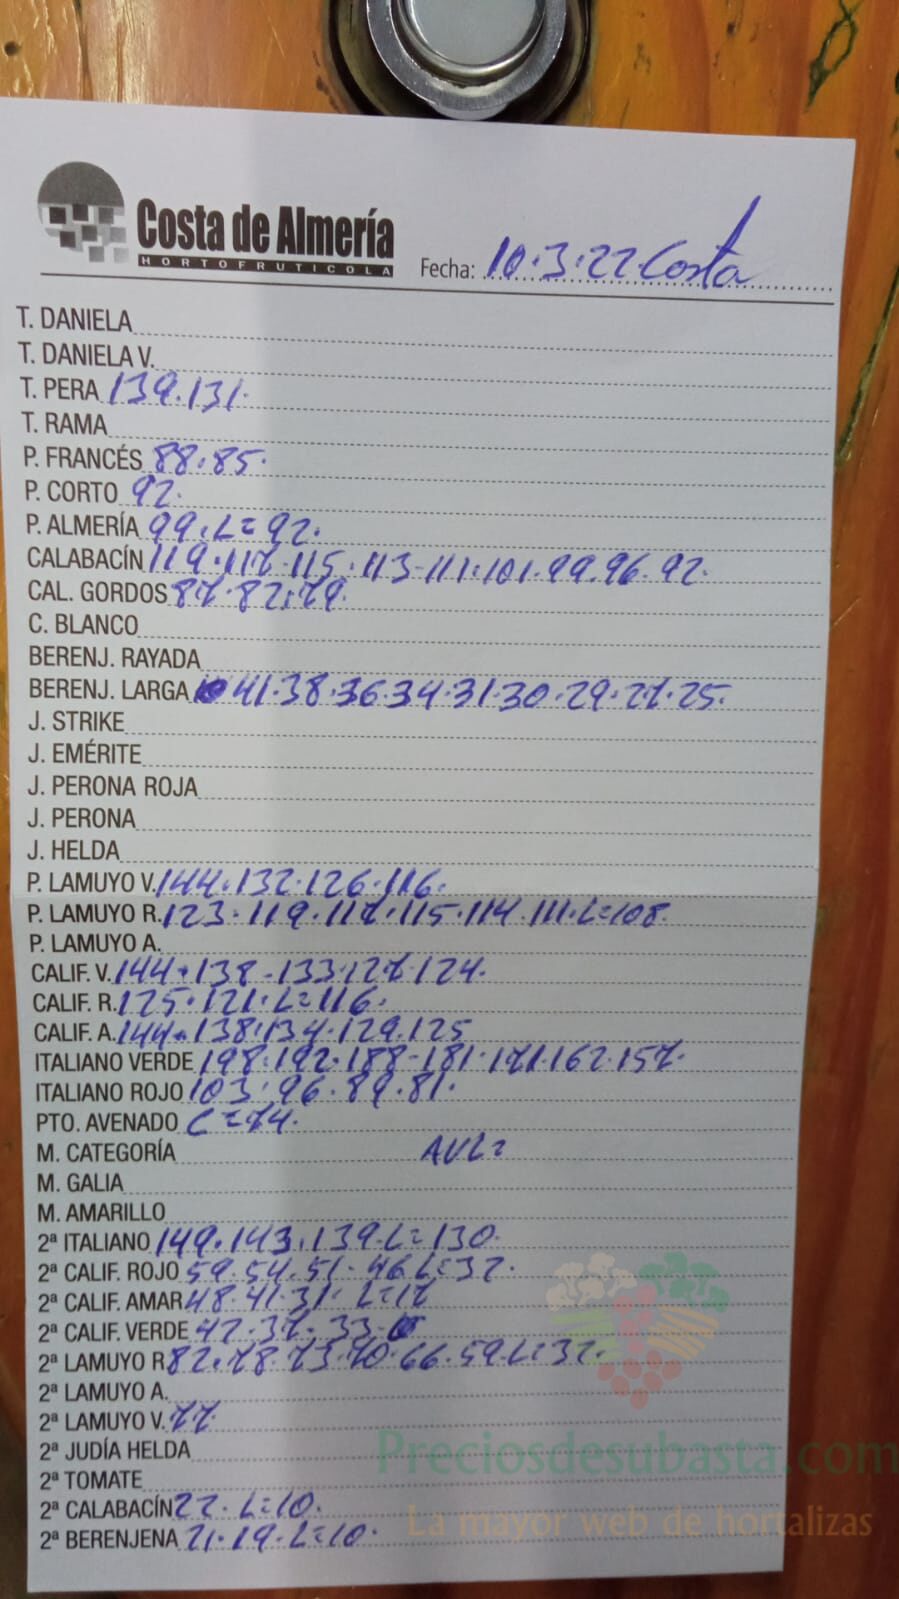 Costa de Almería
HORTOFRUTICOLA
Fecha: 10.3.22 Costa
T. DANIELA
T. DANIELA V.
T. PERA 139.131.
T. RAMA
P. FRANCÉS 88.85.
P. CORTO 92.
P. ALMERÍA 99.L=92.
CALABACÍN 119.117.115.113-111.101.99.96.92.
CAL. GORDOS 87.82.79.
C. BLANCO
BERENJ. RAYADA
BERENJ. LARGA 41.38.36.34.31.30.29.27.25.
J. STRIKE
J. EMÉRITE
J. PERONA ROJA
J. PERONA
J. HELDA
P. LAMUYO V. 144.132.126.116.
P. LAMUYO R. 123.119.117.115.114.111.L=108.
P. LAMUYO A.
CALIF. V. 144.138-133.127.124.
CALIF. R. 125.121.L=116.
CALIF. A. 144.138.134.129.125
ITALIANO VERDE 198.192.188-181.171.162.157.
ITALIANO ROJO 103.96.89.81.
PTO. AVENADO L=74.
M. CATEGORÍA AVL=
M. GALIA
M. AMARILLO
2ª ITALIANO 149.143.139.L=130.
2ª CALIF. ROJO 59.54.51.46.L=32.
2ª CALIF. AMAR 48.41.31.L=17
2ª CALIF. VERDE 42.37.33-
2ª LAMUYO R 82.78.73.70.66.59.L=32.
2ª LAMUYO A.
2ª LAMUYO V. 77
2ª JUDÍA HELDA
2ª TOMATE
2ª CALABACÍN 22.L=10.
2ª BERENJENA 21.19.L=10.
Preciosdesubasta.com
La mayor web de hortalizas